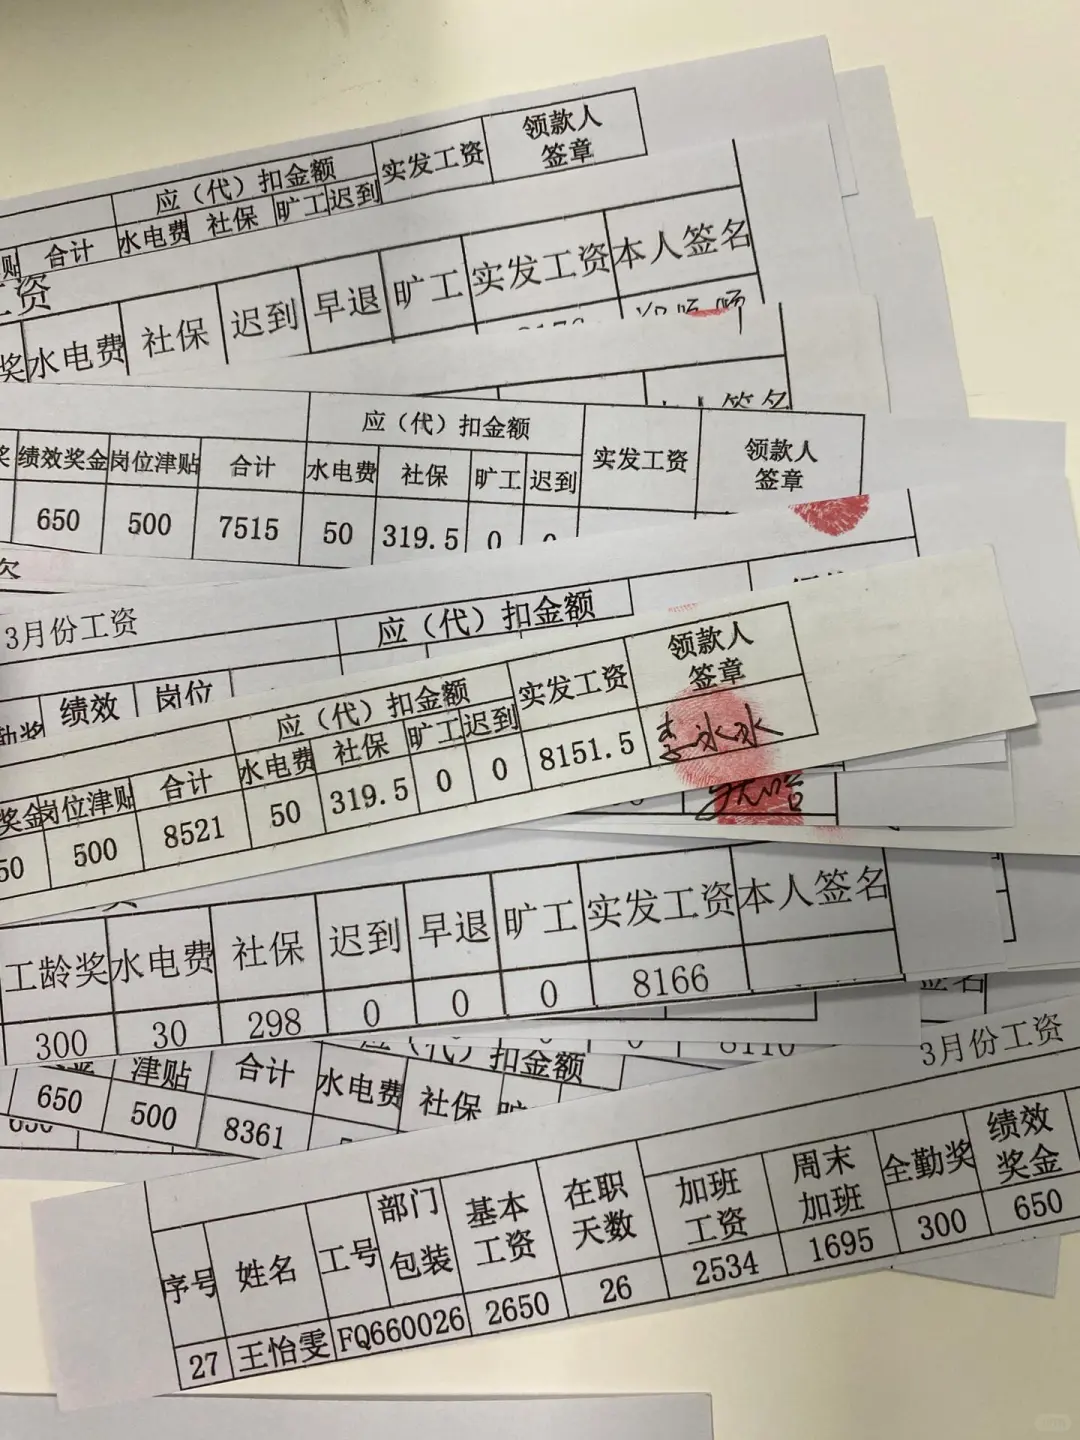 应（代）扣金额 实发工资 领款人签章
贴 合计 水电费 社保 旷工 迟到
工资
奖 水电费 社保 迟到 早退 旷工 实发工资 本人签名
应（代）扣金额 实发工资 领款人签章
奖 绩效奖金 岗位津贴 合计 水电费 社保 旷工 迟到
650 500 7515 50 319.5 0
3月份工资
应（代）扣金额
勤奖 绩效 岗位
应（代）扣金额 实发工资 领款人签章
奖金 岗位津贴 合计 水电费 社保 旷工 迟到
50 500 8521 50 319.5 0 0 8151.5 李冰冰
工龄奖 水电费 社保 迟到 早退 旷工 实发工资 本人签名
300 30 298 0 0 0 8166
扣金额
津贴 合计 水电费 社保
650 500 8361
3月份工资
序号 姓名 工号 部门 基本工资 在职天数 加班工资 周末加班 全勤奖 绩效奖金
包装
27 王怡雯 FQ660026 2650 26 2534 1695 300 650